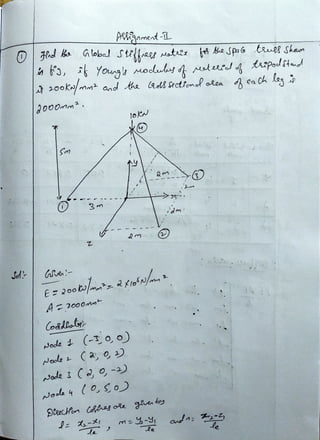 Assignment-II
① Find the Global Stiffness matrix for the space truss shown
in fig, if Young's modulus of material of tripod stand
is 200KN/mm² and the Cross Sectional area of each leg is
2000mm².
10KN
④
5m
y
2m
③
2m
x
①
3m
2m
z
2m
②
Sol:- Given:-
E = 200KN/mm² = 2×10⁵N/mm²
A = 2000mm²
Coordinates
Node 1 (-3, 0, 0)
Node 2 (2, 0, 2)
Node 3 (2, 0, -2)
Node 4 (0, 5, 0)
Direction Cosines are given by
l = x₂-x₁/le , m = y₂-y₁/le and n = z₂-z₁/le